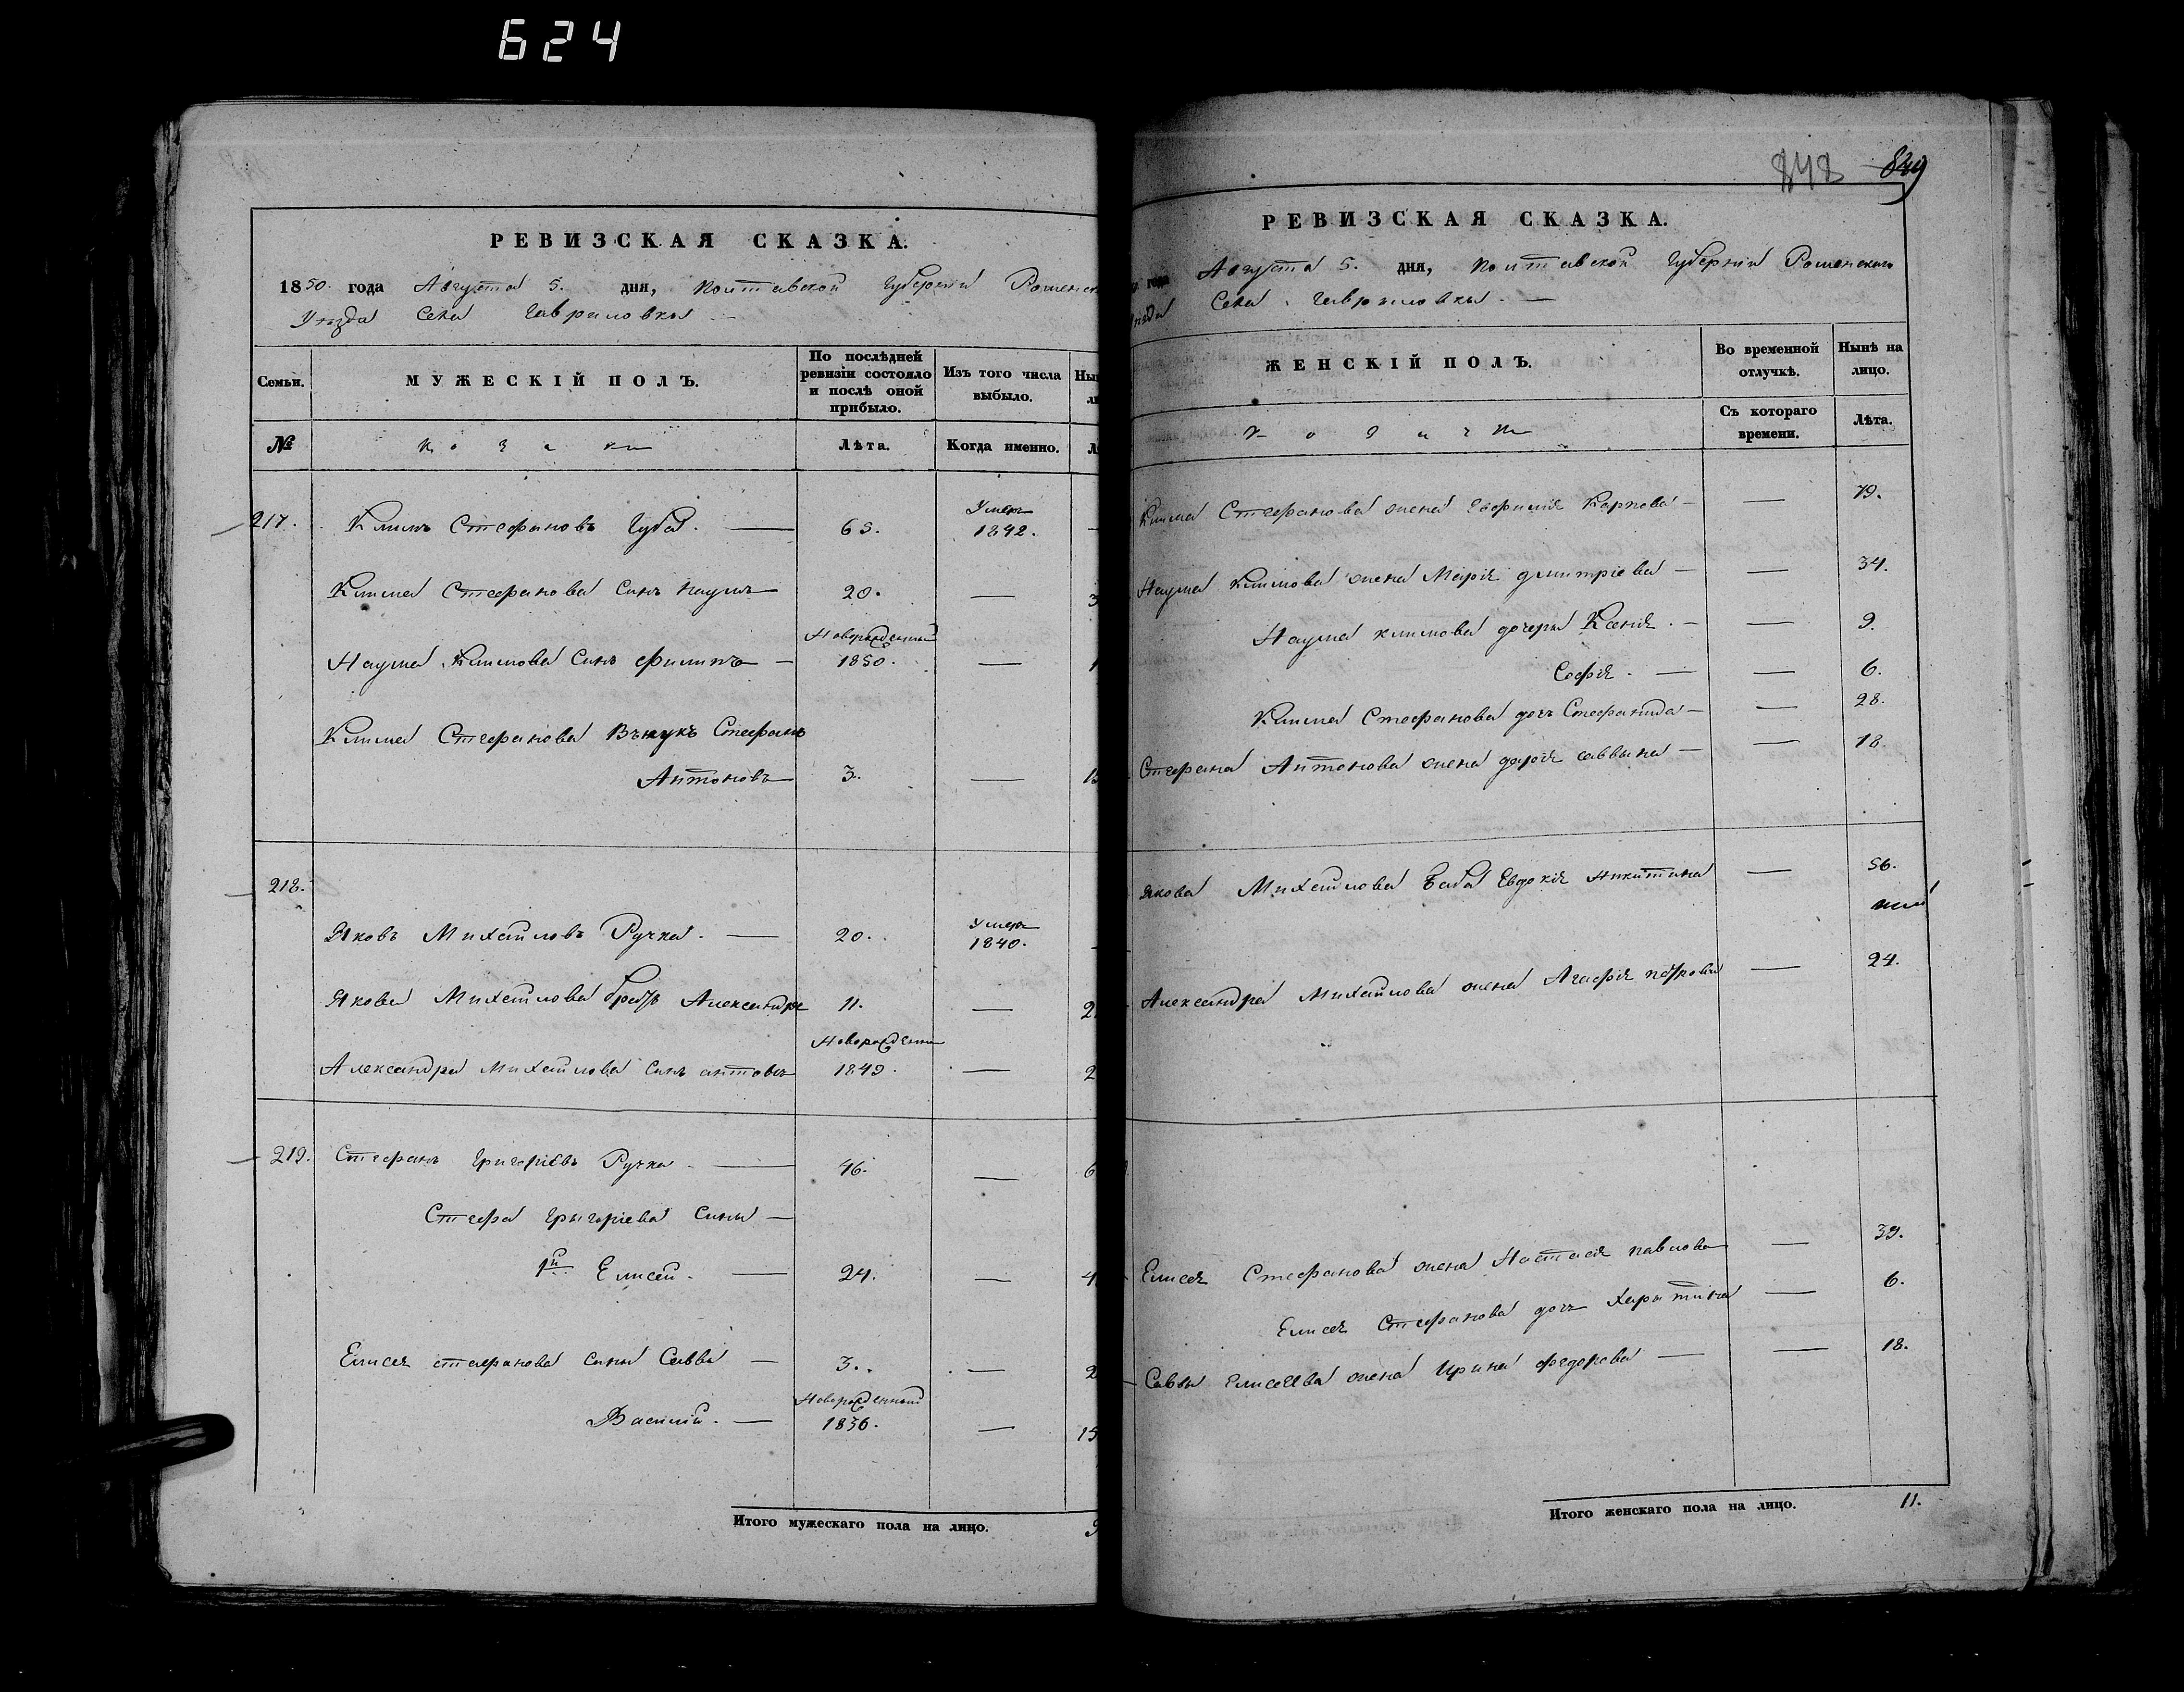 624
РЕВИЗСКАЯ СКАЗКА.
1850. года Августа 5. дня, Полтавской Губерніи Роменск
Уѣзда Села Гавриловки. —
Семьи. МУЖЕСКІЙ ПОЛЪ. По послѣдней ревизіи состояло и послѣ оной прибыло. Изъ того числа выбыло.
№ Козаки Лѣта. Когда именно.
217. Климъ Стефановъ Губа. — 65. Умеръ 1842. —
Клима Стефанова Сынъ Наумъ 20. — 3
Наума Климова Сынъ Филипъ — Новорожденный 1850. — 1
Клима Стефанова Внукъ Стефанъ
Антоновъ 3. — 1
218.
Яковъ Михайловъ Ручка. — 20. Умеръ 1840.
Якова Михайлова братъ Александръ 11. — 2
Александра Михайлова Сынъ Новорожденный 1849. — 2
219. Стефанъ Григоріевъ Ручка. — 46. — 6
Стефа Григоріева Сыны —
1й Елисей. — 24. — 4
Елисея Стефанова Сыны Савва — 3. — 2
Василій. — Новорожденный 1836. — 15
Итого мужескаго пола на лицо. 9
848 849
РЕВИЗСКАЯ СКАЗКА.
года Августа 5. дня, Полтавской Губерніи Роменскаго
Села Гавриловки. —
ЖЕНСКІЙ ПОЛЪ. Во временной отлучкѣ. Нынѣ на лицо.
Съ котораго времени. Лѣта.
Клима Стефанова жена Евфимія Карпова — — 79.
Наума Климова жена Марія Дмитріева — — 34.
Наума Климова дочери Ксенія. — — 9.
Софія. — — 6.
Клима Стефанова дочь Стефанида — — 28.
Стефана Антонова жена Дарія Саввина — — 18.
Якова Михайлова баба Евдокія Никитина — 56.
Александра Михайлова жена Агафія Петрова — 24.
Елисея Стефанова жена Настасія Павлова — 39.
Елисея Стефанова дочь Харитина — 6.
Саввы Елисеева жена Ирина Федорова — — 18.
Итого женскаго пола на лицо. 11.